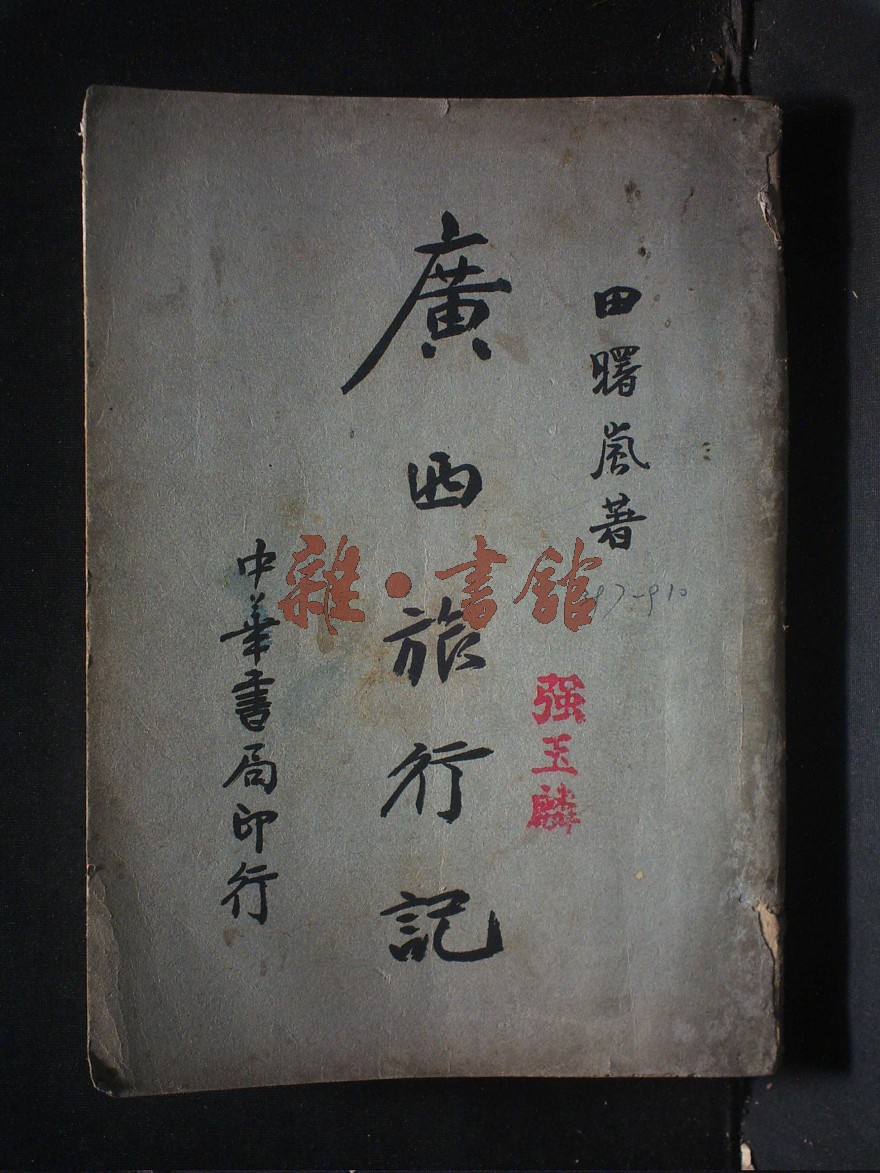 田曙嵐著
廣西旅行記
中華書局印行
强玉麟
雜·書館